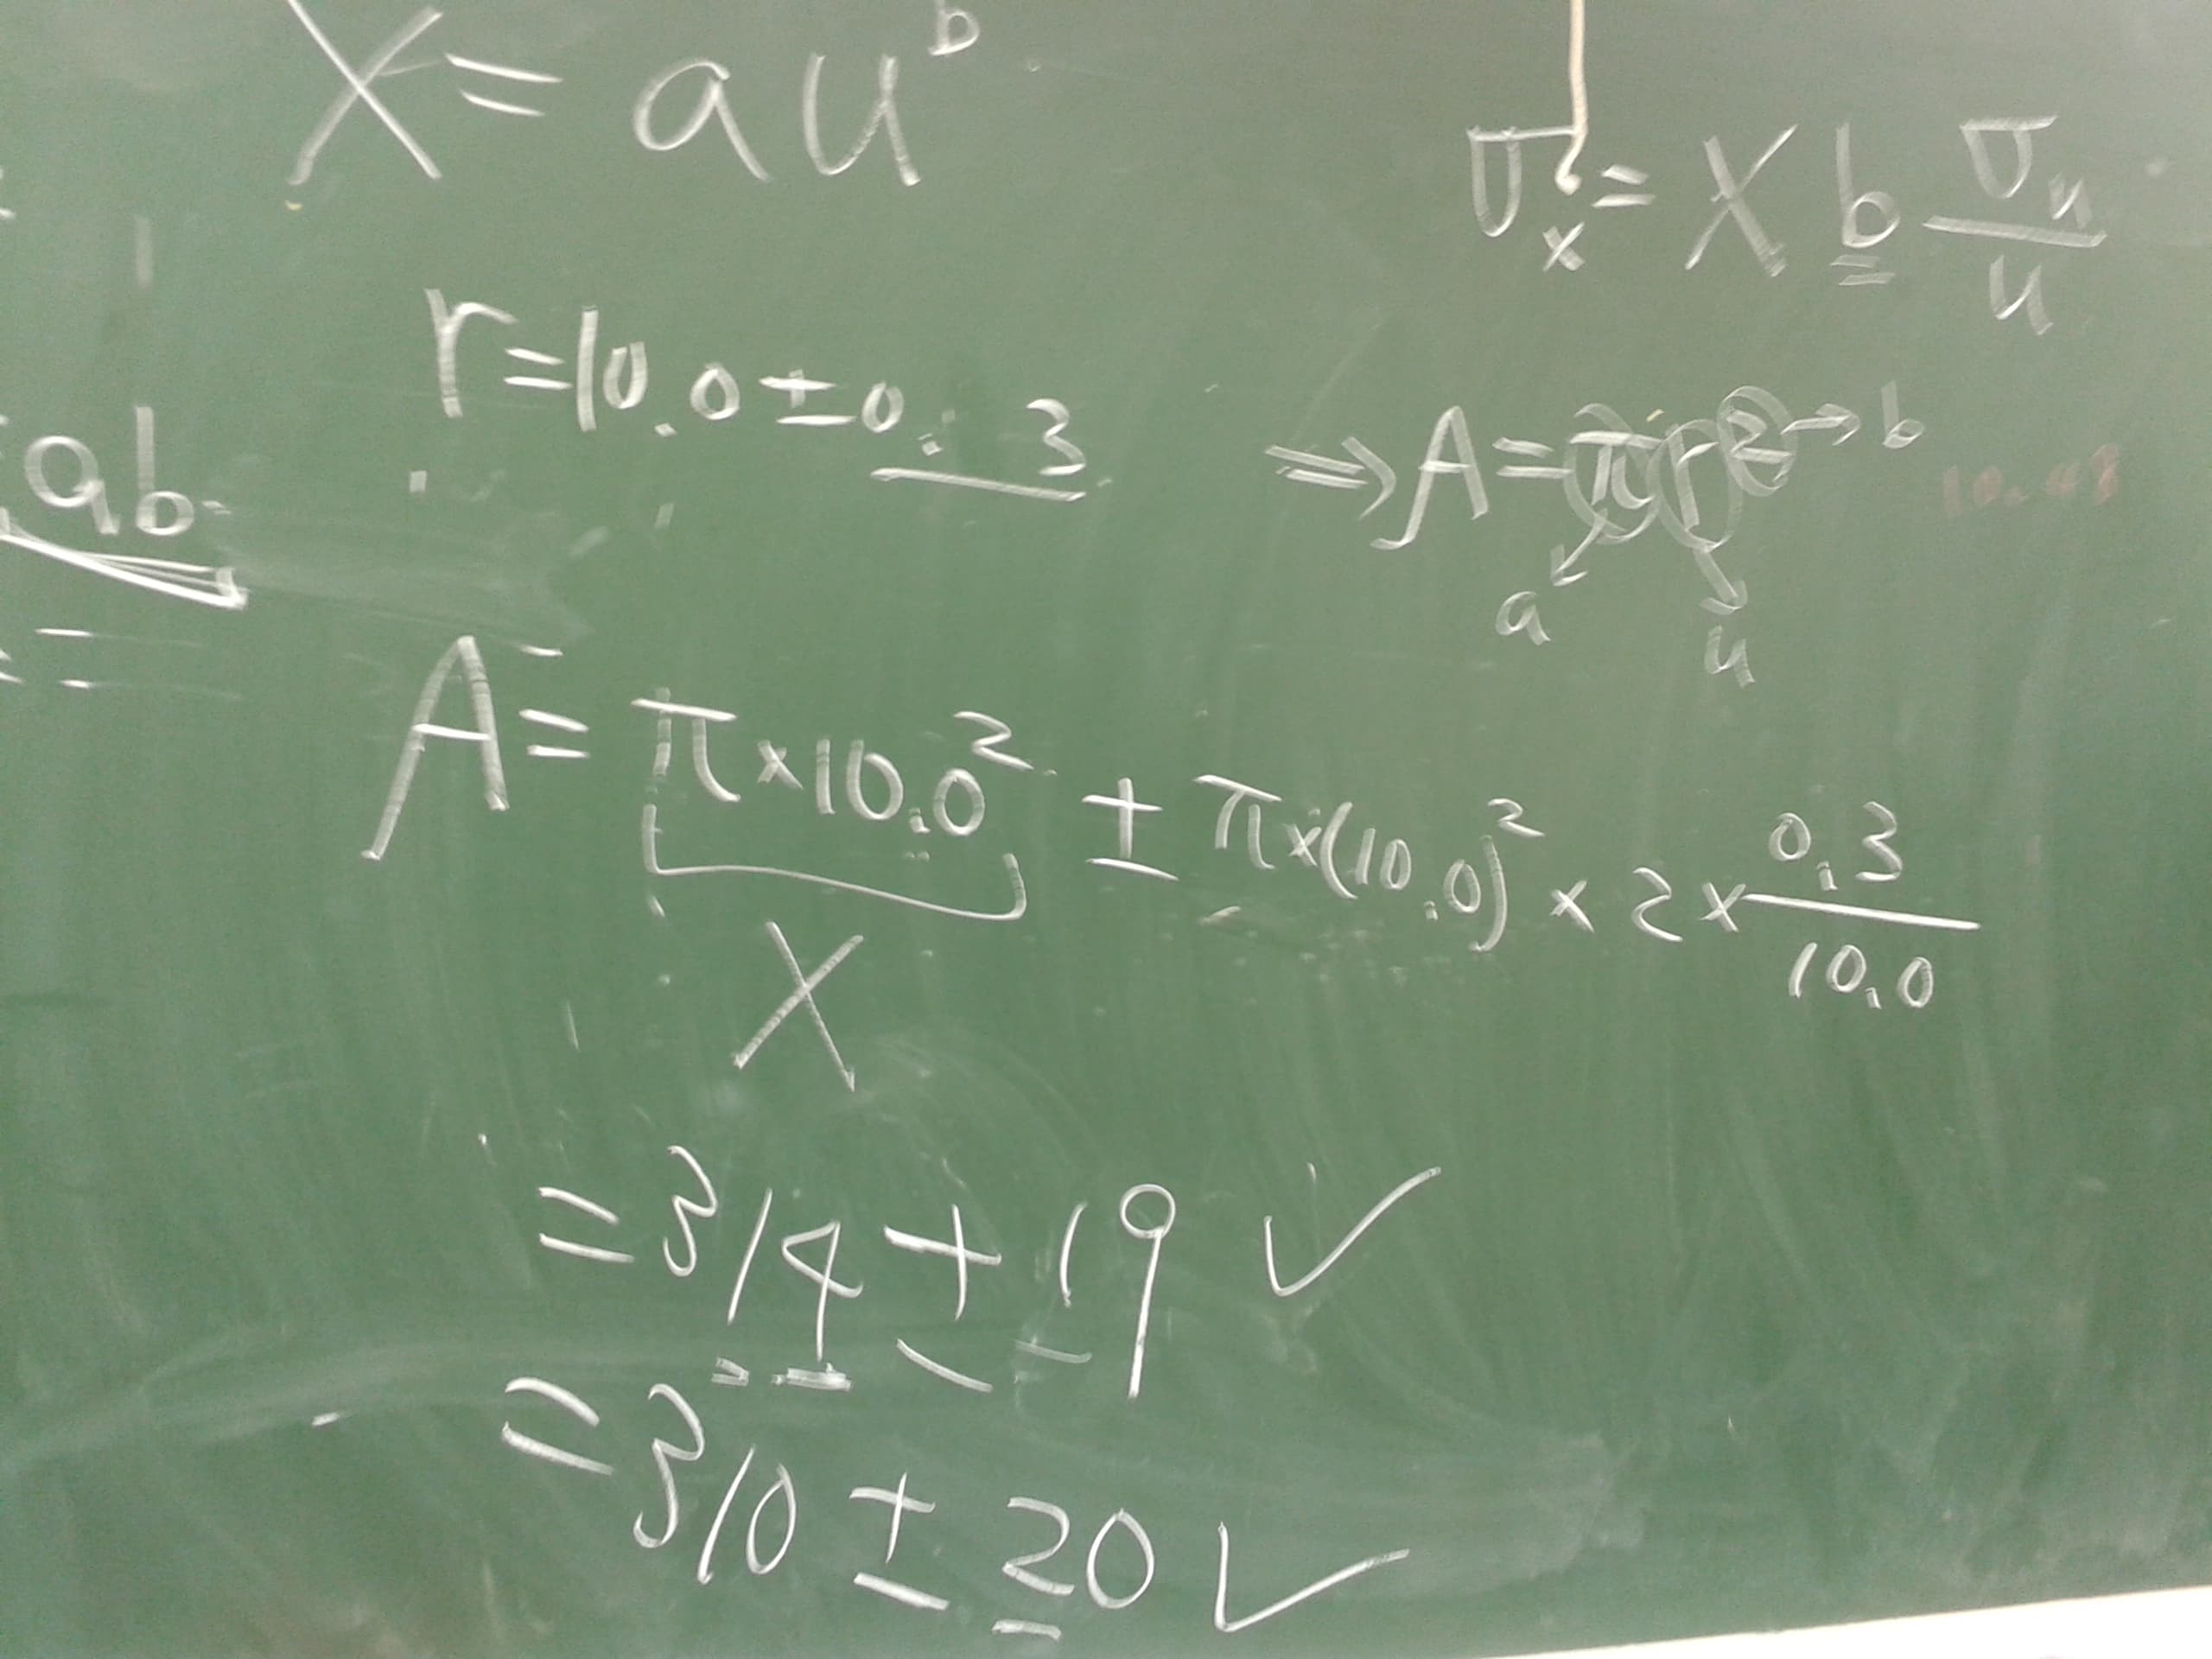 X = au^b
σ_x = X b σ_u/u
r = 10.0 ± 0.3
⇒ A = πr² → b
ab
a
u
A = π×10.0² ± π×(10.0)² × 2 × 0.3/10.0
X
= 314 ± 19 ✓
= 310 ± 20 ✓